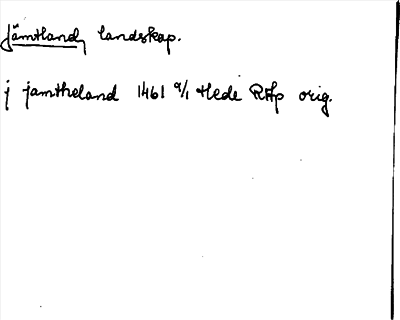 Jämtland, landskap.
j jamtheland 1461 9/1 Hede RAp orig.